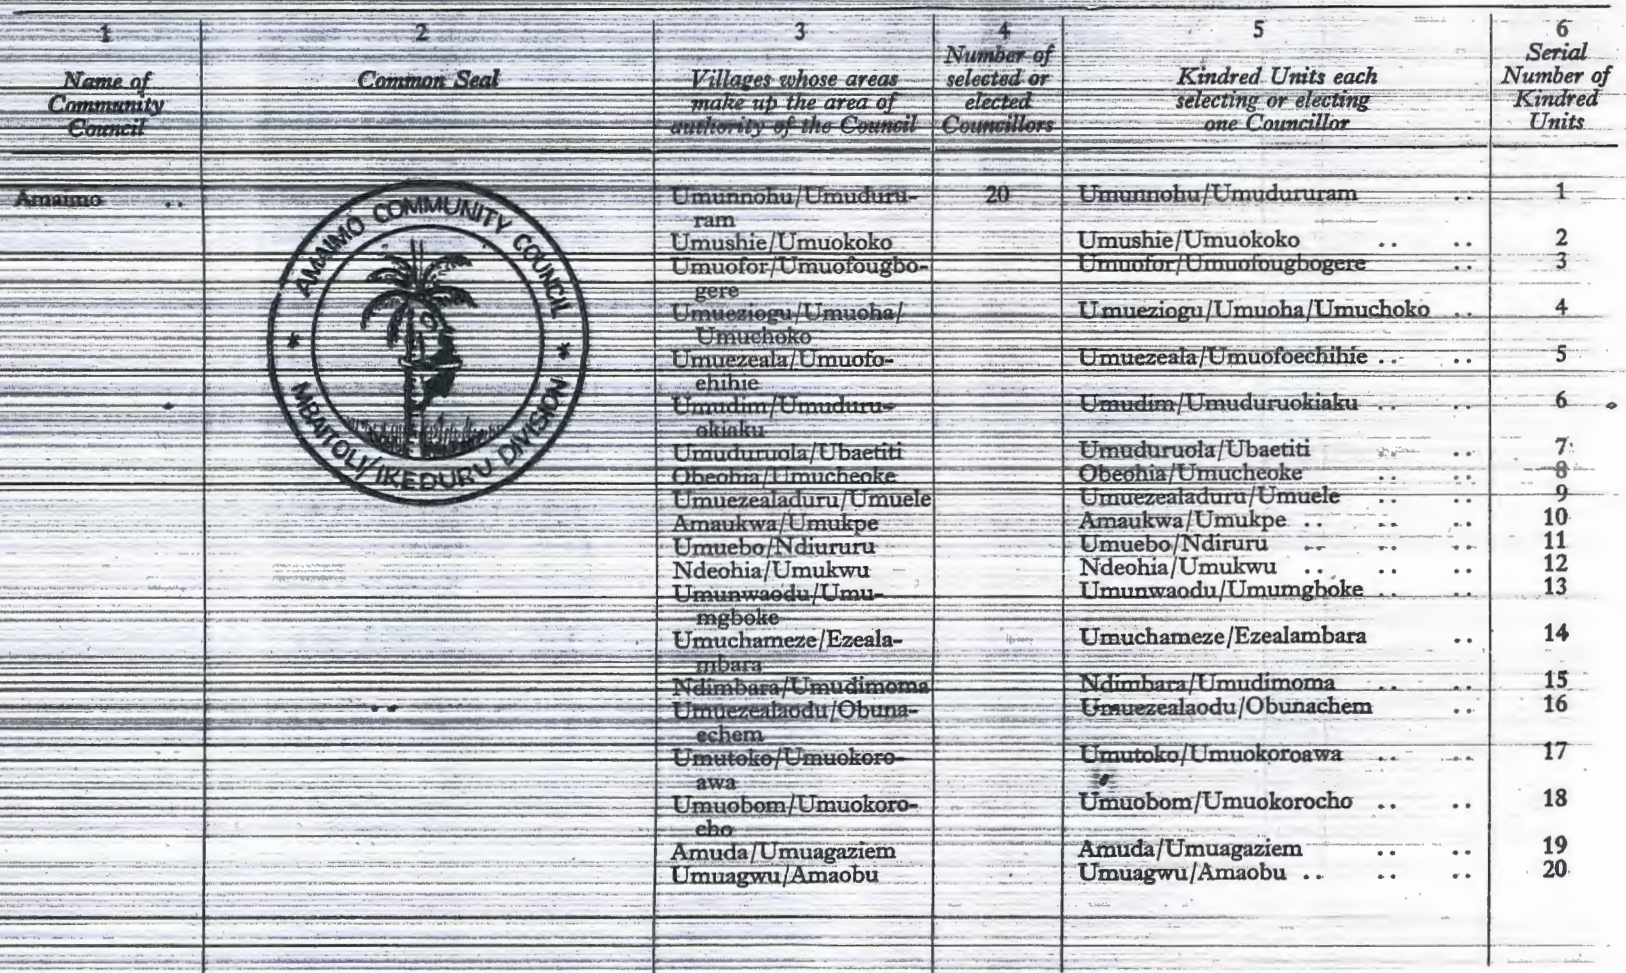 1 2 3 4 5 6
Name of Community Council
Common Seal
Villages whose areas make up the area of authority of the Council
Number of selected or elected Councillors
Kindred Units each selecting or electing one Councillor
Serial Number of Kindred Units
Amaimo ..
AMAIMO COMMUNITY COUNCIL
* MBAITOLI/IKEDURU DIVISION *
Umunnohu/Umuduru- 20 Umunnohu/Umudururam .. 1
ram
Umushie/Umuokoko Umushie/Umuokoko .. .. 2
Umuofor/Umuofougbo- Umuofor/Umuofougbogere .. 3
gere
Umueziogu/Umuoha/ Umueziogu/Umuoha/Umuchoko .. 4
Umuchoko
Umuezeala/Umuofo- Umuezeala/Umuofoechihie .. .. 5
ehihie
Umudim/Umuduru- Umudim/Umuduruokiaku .. .. 6
okiaku
Umuduruola/Ubaetiti Umuduruola/Ubaetiti .. .. 7
Obeohia/Umucheoke Obeohia/Umucheoke .. .. 8
Umuezealaduru/Umuele Umuezealaduru/Umuele .. .. 9
Amaukwa/Umukpe Amaukwa/Umukpe .. .. .. 10
Umuebo/Ndiururu Umuebo/Ndiruru .. .. .. 11
Ndeohia/Umukwu Ndeohia/Umukwu .. .. .. 12
Umunwaodu/Umu- Umunwaodu/Umumgboke .. .. 13
mgboke
Umuchameze/Ezeala- Umuchameze/Ezealambara .. 14
mbara
Ndimbara/Umudimoma Ndimbara/Umudimoma .. .. 15
Umuezealaodu/Obuna- Umuezealaodu/Obunachem .. 16
echem
Umutoko/Umuokoro- Umutoko/Umuokoroawa .. .. 17
awa
Umuobom/Umuokoro- Umuobom/Umuokorocho .. .. 18
cho
Amuda/Umuagaziem Amuda/Umuagaziem .. .. 19
Umuagwu/Amaobu Umuagwu/Amaobu .. .. .. 20